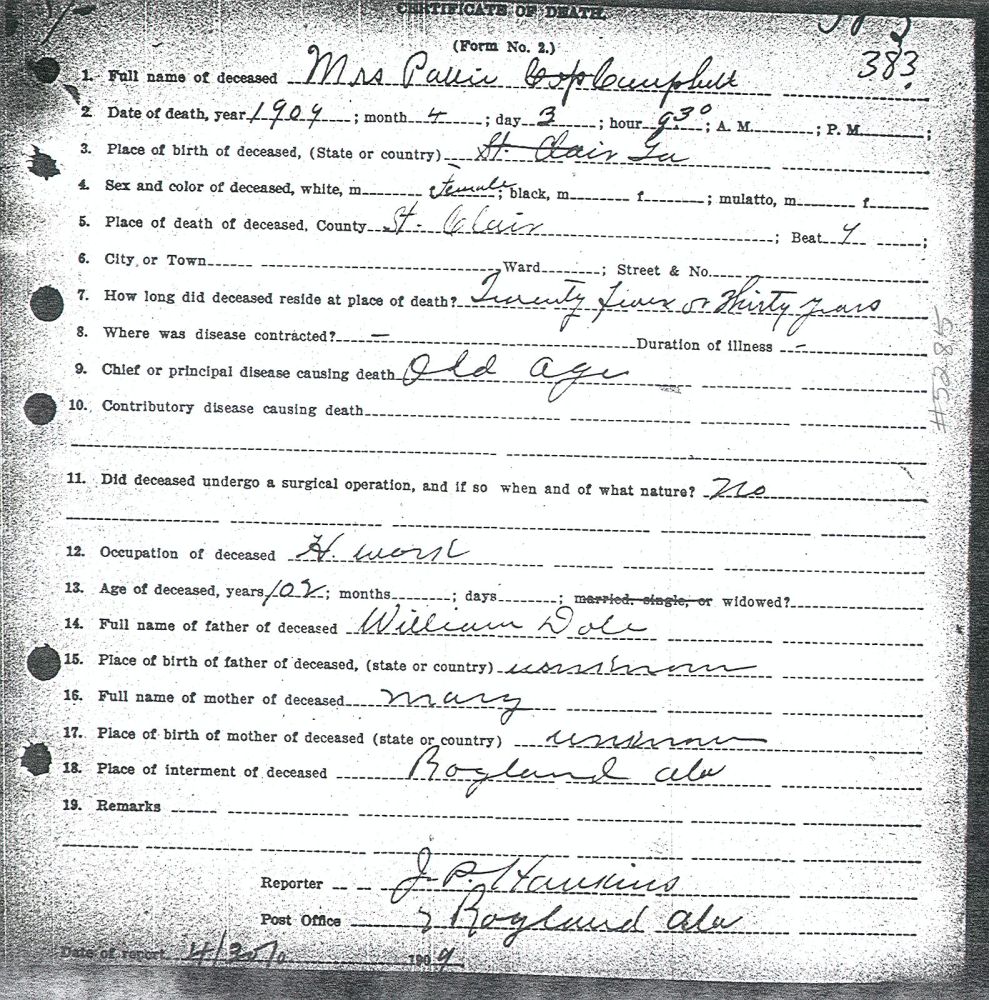 CERTIFICATE OF DEATH.
(Form No. 2.)
383
1. Full name of deceased Mrs Pallie Campbell
2. Date of death, year 1909; month 4; day 3; hour 930; A. M.; P. M.;
3. Place of birth of deceased, (State or country) St. Clair Ga
4. Sex and color of deceased, white, m. female; black, m. f.; mulatto, m. f.
5. Place of death of deceased, County St. Clair; Beat;
6. City or Town Ward; Street & No.
7. How long did deceased reside at place of death? Twenty five or Thirty years
8. Where was disease contracted? — Duration of illness —
9. Chief or principal disease causing death Old age
10. Contributory disease causing death
#5285
11. Did deceased undergo a surgical operation, and if so when and of what nature? No
12. Occupation of deceased H. work
13. Age of deceased, years 102; months; days; married, single, or widowed?
14. Full name of father of deceased William Dole
15. Place of birth of father of deceased, (state or country) unknown
16. Full name of mother of deceased Mary
17. Place of birth of mother of deceased (state or country) unknown
18. Place of interment of deceased Ragland Ala
19. Remarks
Reporter J. P. Hawkins
Post Office Ragland Ala
Date of report 4/30/ 1909